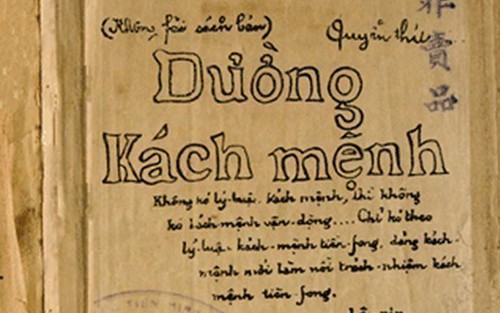 (Không fải sách bán) Quyển thứ
非賣品
Dường
Kách mệnh
Không kó lý-luận kách mệnh, thì không
kó kách mệnh vận-động.... Chỉ kó theo
lý-luận kách-mệnh tiền-fong, đảng kách-
mệnh mới làm nổi trách-nhiệm kách
mệnh tiền-fong.